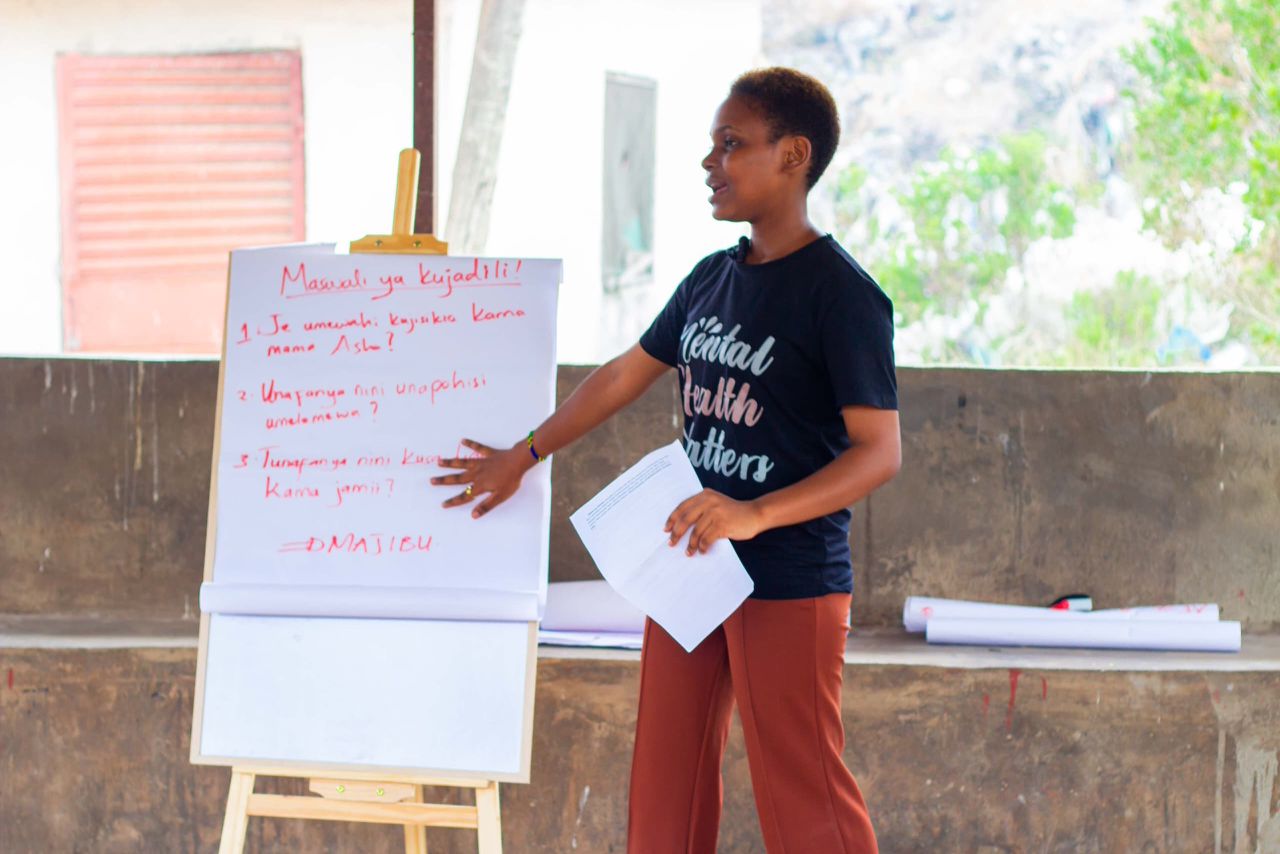 Maswali ya kujadili!
1. Je umewahi kujisikia kama
mama Asha?
2. Unafanya nini unapohisi
umelemewa?
3. Tunafanya nini
kama jamii?
⇒ MAJIBU
Mental
Health
Matters